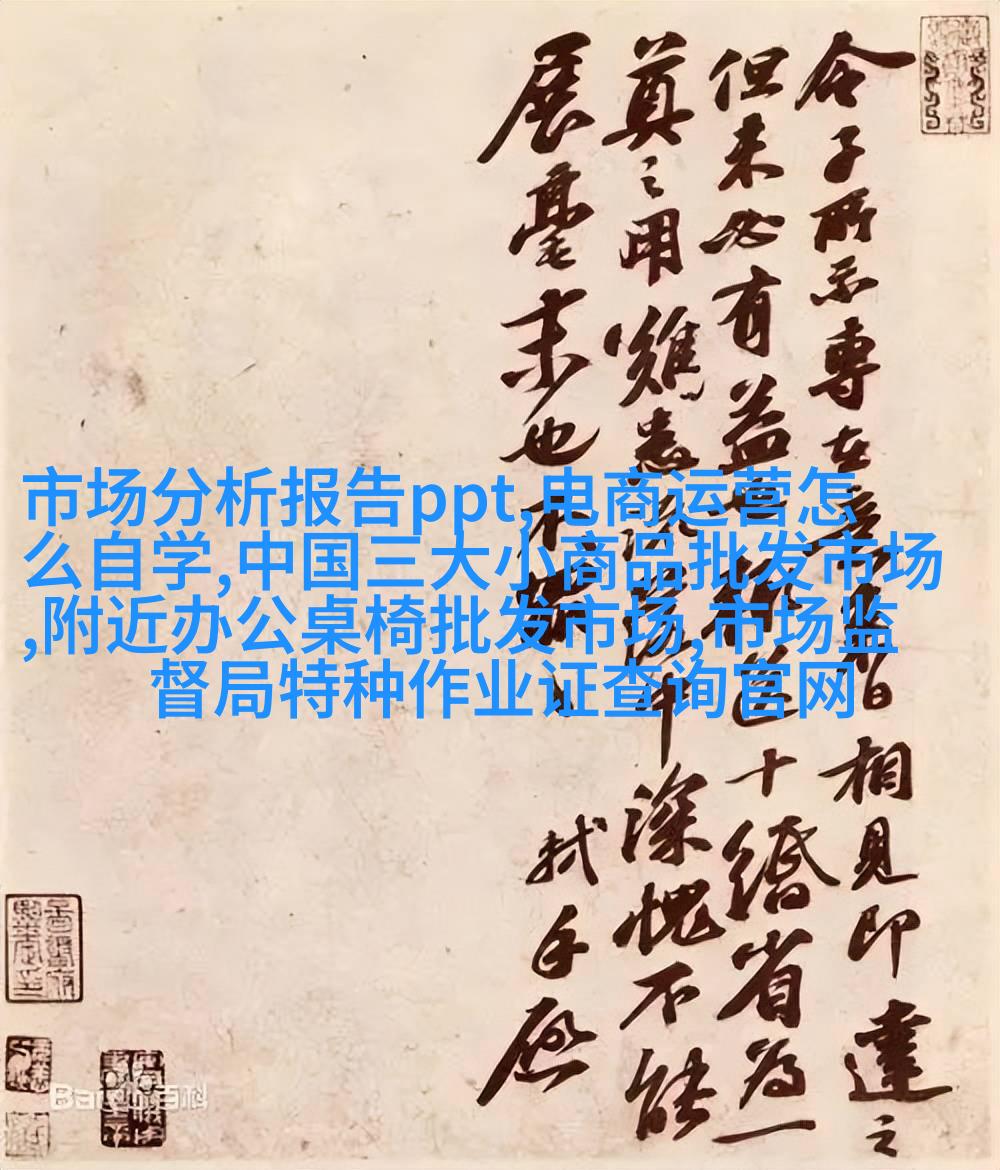 令子所示專在意日相見即達之
但未必有益送十緡省為一
奠之用雖患中深愧不能
展毫末也不
軾手啟
市场分析报告ppt,电商运营怎
么自学,中国三大小商品批发市场
,附近办公桌椅批发市场,市场监
督局特种作业证查询官网
Baidu百科